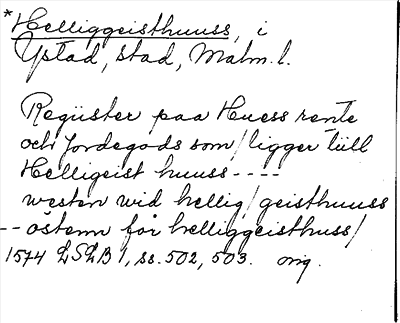 *Helliggeisthuuss, i
Ystad, stad, Malm. l.
Regüster paa Huess rente
och Jordegods som/ligger tüll
Helligeist huuss ----
westen wid hellig/geisthuuss
-- östenn for helliggeisthuss/
1574 LSLB 1, ss. 502, 503. orig.